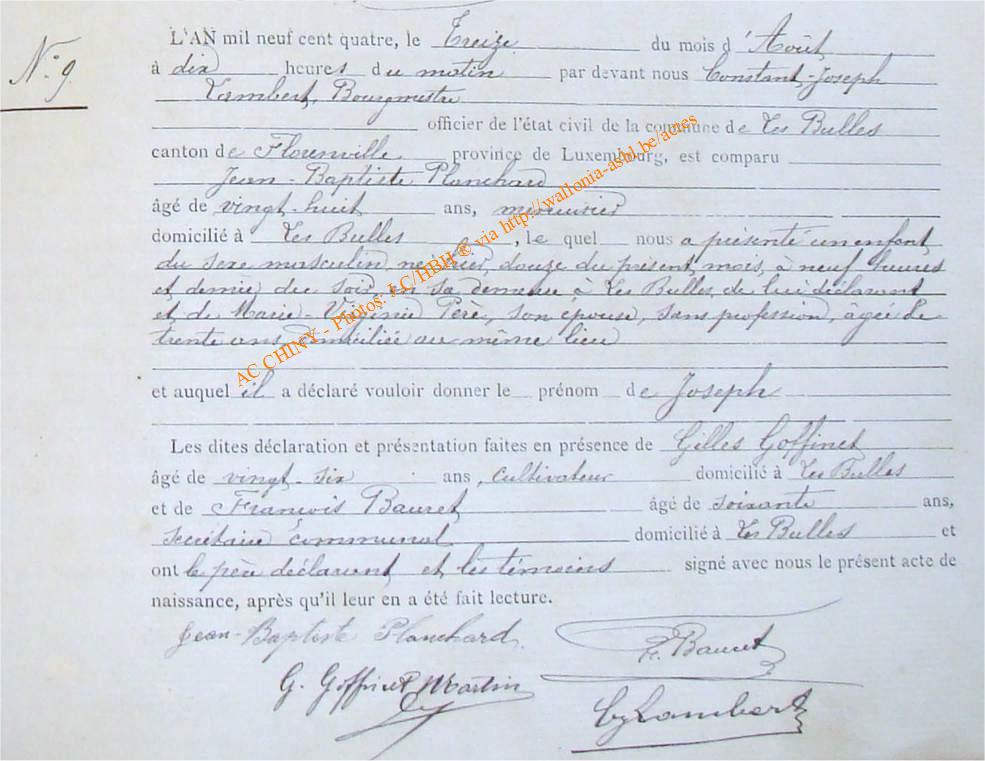 N° 9
L'AN mil neuf cent quatre, le Treize du mois d'Août
à dix heures du matin par devant nous Constant-Joseph
Lambert, Bourgmestre
officier de l'état civil de la commune de Les Bulles
canton de Florenville province de Luxembourg, est comparu
Jean-Baptiste Planchard
âgé de vingt-huit ans, menuisier
domicilié à Les Bulles, le quel nous a présenté un enfant
du sexe masculin, né hier, douze du présent mois, à neuf heures
et demie du soir, en sa demeure à Les Bulles, de lui déclarant
et de Marie-Virginie Père, son épouse, sans profession, âgée de
trente ans, domiciliée au même lieu
et auquel il a déclaré vouloir donner le prénom de Joseph
Les dites déclaration et présentation faites en présence de Gilles Goffinet
âgé de vingt-six ans, cultivateur domicilié à Les Bulles
et de François Bauret âgé de soixante ans,
secrétaire communal domicilié à Les Bulles et
ont le père déclarant et les témoins signé avec nous le présent acte de
naissance, après qu'il leur en a été fait lecture.
Jean-Baptiste Planchard
F. Bauret
G. Goffinet Martin
CJ Lambert
AC CHINY - Photos: J.C/HBH ® via http://wallonia-asbl.be/actes